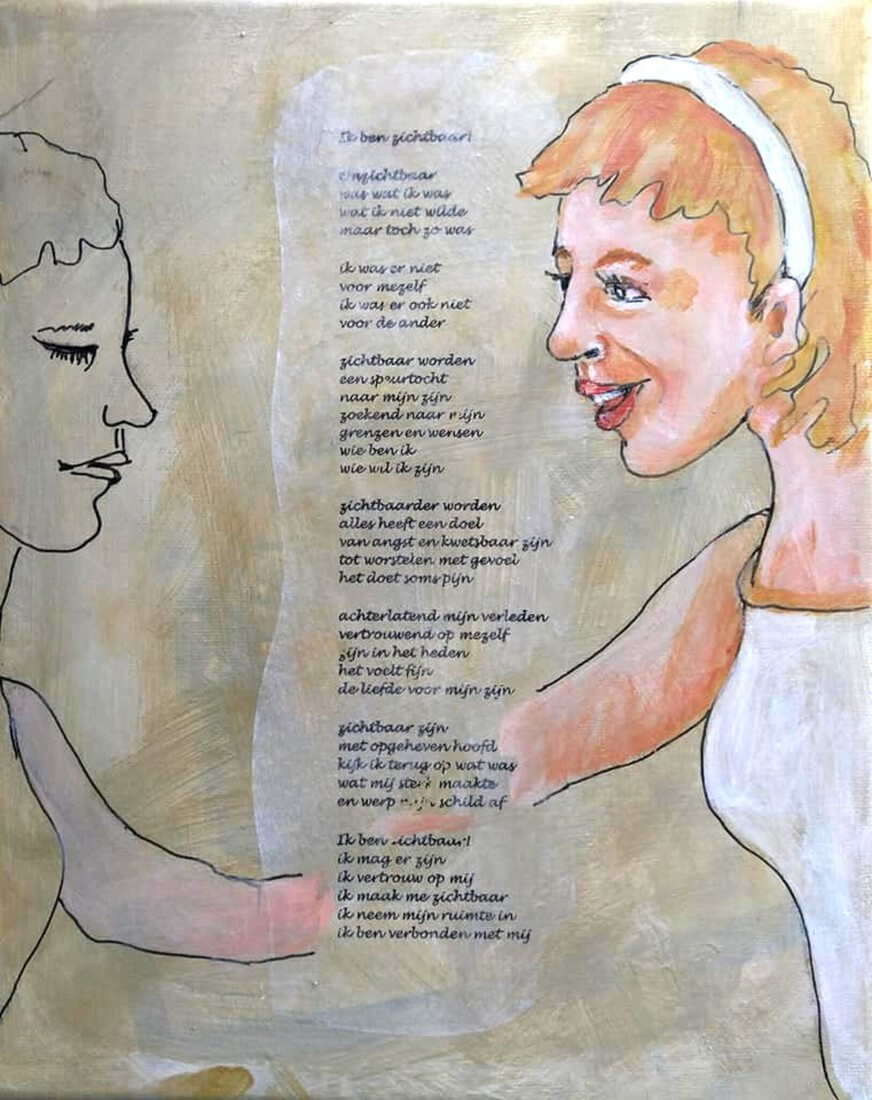 Ik ben zichtbaar!
onzichtbaar
was wat ik was
wat ik niet wilde
maar toch zo was
ik was er niet
voor mezelf
ik was er ook niet
voor de ander
zichtbaar worden
een speurtocht
naar mijn zijn
zoekend naar mijn
grenzen en wensen
wie ben ik
wie wil ik zijn
zichtbaarder worden
alles heeft een doel
van angst en kwetsbaar zijn
tot worstelen met gevoel
het doet soms pijn
achterlatend mijn verleden
vertrouwend op mezelf
zijn in het heden
het voelt fijn
de liefde voor mijn zijn
zichtbaar zijn
met opgeheven hoofd
kijk ik terug op wat was
wat mij sterk maakte
en werp mijn schild af
Ik ben zichtbaar!
ik mag er zijn
ik vertrouw op mij
ik maak me zichtbaar
ik neem mijn ruimte in
ik ben verbonden met mij